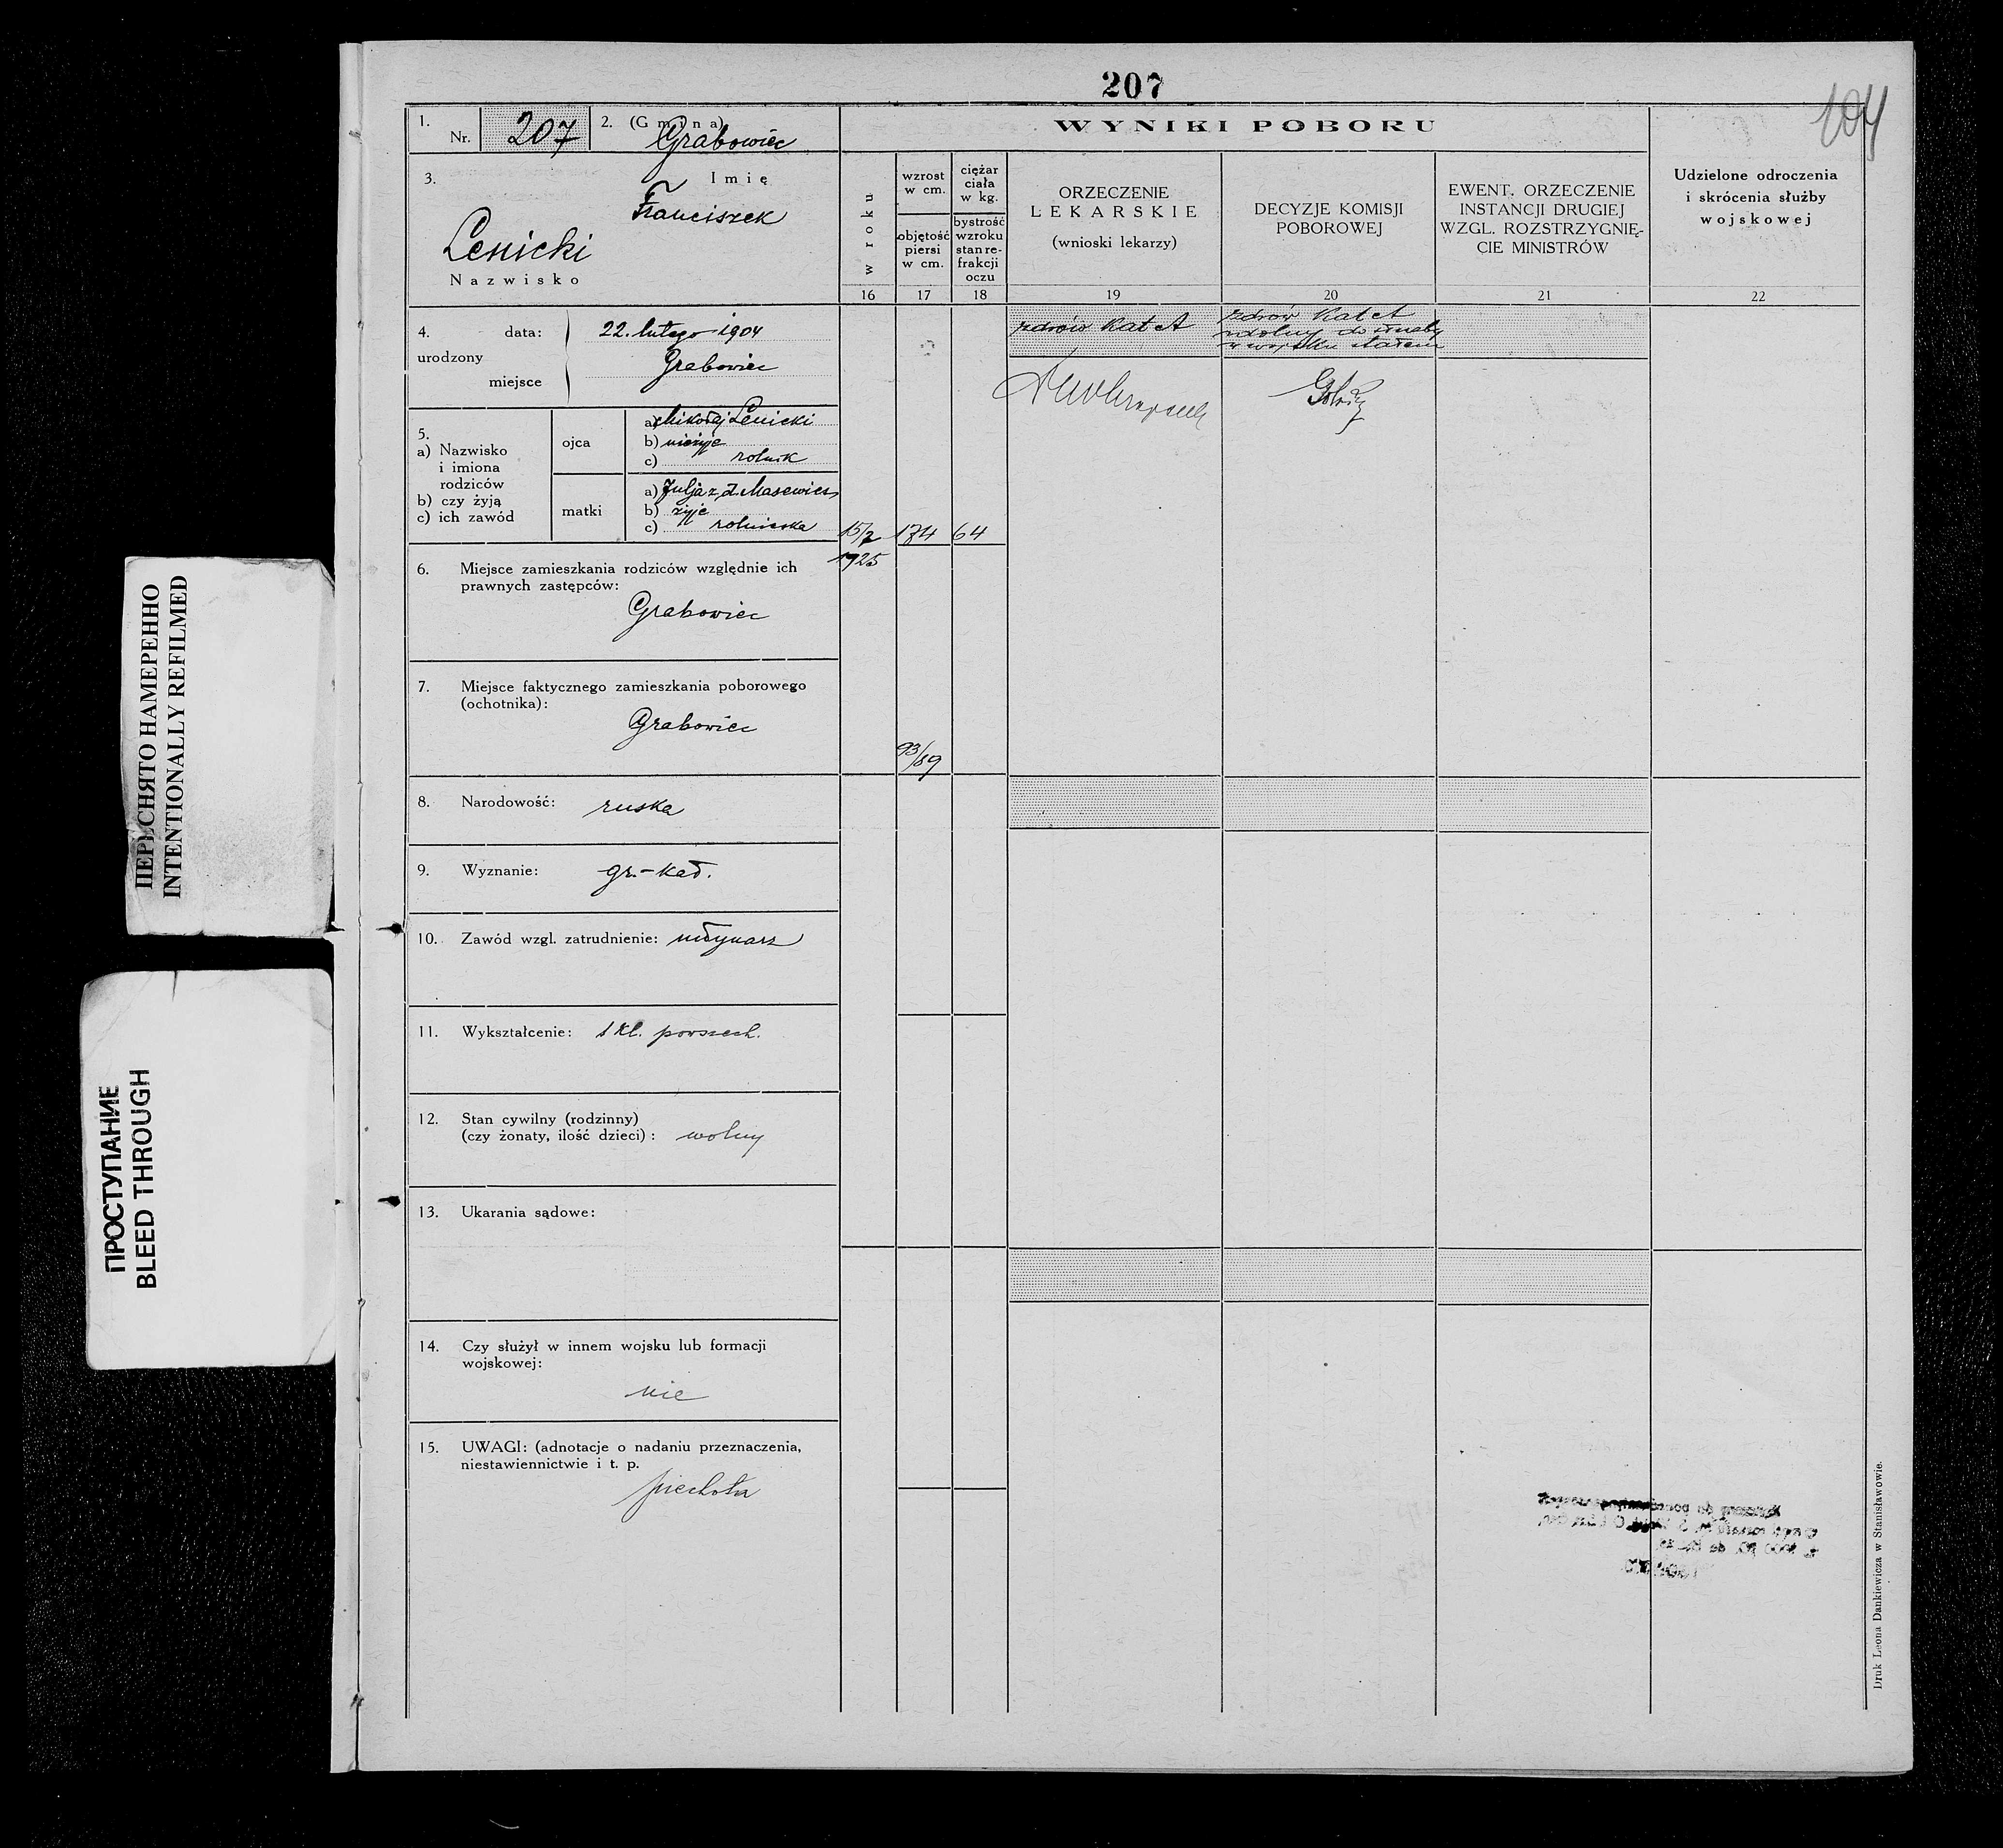 207
104
1.
Nr. 207
2. (Gmina)
Grabowiec
3.
Imię
Franciszek
Lenicki
Nazwisko
4.
urodzony
data: 22. lutego 1904
miejsce Grabowiec
5.
a) Nazwisko
i imiona
rodziców
b) czy żyją
c) ich zawód
ojca
a) Mikołaj Lenicki
b) nieżyje
c) rolnik
matki
a) Julja z d.
b) żyje
c) rolniczka
6. Miejsce zamieszkania rodziców względnie ich
prawnych zastępców:
Grabowiec
7. Miejsce faktycznego zamieszkania poborowego
(ochotnika):
Grabowiec
8. Narodowość: ruska
9. Wyznanie: gr.-kat.
10. Zawód wzgl. zatrudnienie: młynarz
11. Wykształcenie: 1 kl. powszech.
12. Stan cywilny (rodzinny)
(czy żonaty, ilość dzieci): wolny
13. Ukarania sądowe:
14. Czy służył w innem wojsku lub formacji
wojskowej:
nie
15. UWAGI: (adnotacje o nadaniu przeznaczenia,
niestawiennictwie i t. p.
piechota
WYNIKI POBORU
w roku
16
wzrost
w cm.
objętość
piersi
w cm.
17
ciężar
ciała
w kg.
bystrość
wzroku
stan re-
frakcji
oczu
18
ORZECZENIE
LEKARSKIE
(wnioski lekarzy)
19
DECYZJE KOMISJI
POBOROWEJ
20
EWENT. ORZECZENIE
INSTANCJI DRUGIEJ
WZGL. ROZSTRZYGNIĘ-
CIE MINISTRÓW
21
Udzielone odroczenia
i skrócenia służby
wojskowej
22
15/7 174 64
1925
93/89
zdrów Kat A
zdrów Kat A
zdolny do służby
w wojsku stałem
Druk Leona Dankiewicza w Stanisławowie.
ПЕРЕСНЯТО НАМЕРЕННО
INTENTIONALLY REFILMED
ПРОСТУПАНИЕ
BLEED THROUGH